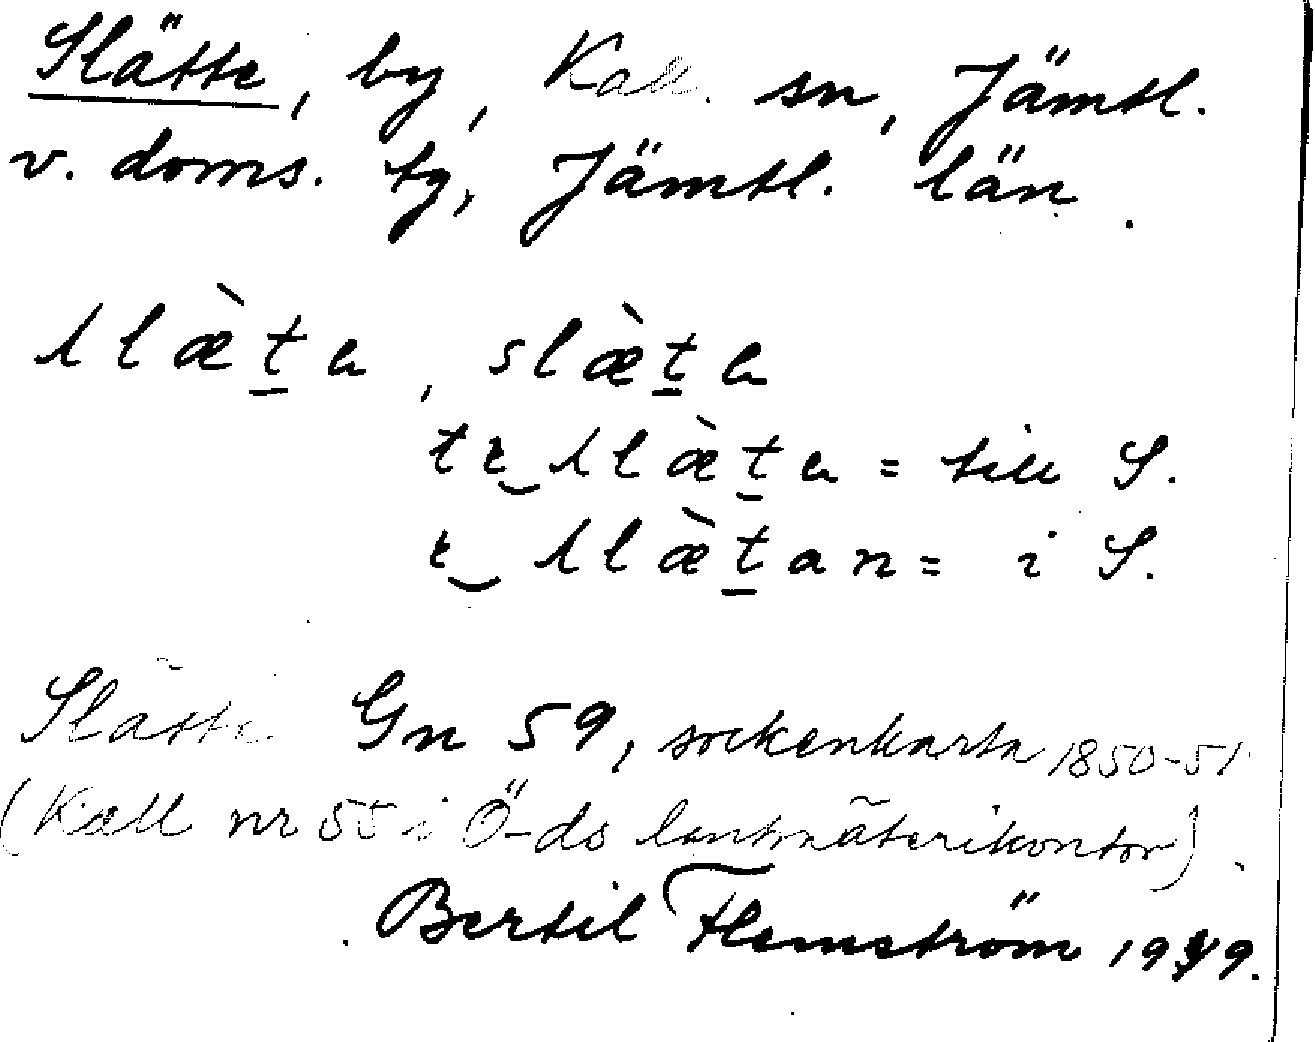 Slätte, by, Kall sn, Jämtl.
v. doms. tg, Jämtl. län.
slæ̀t̲a, slæ̀t̲a
= till S.
slæ̀t̲an = i S.
Slätte Gn 59, sockenkarta 1850-51
(Kall nr 55 i Ö-ds lantmäterikontor).
Bertil Flemström 1949.